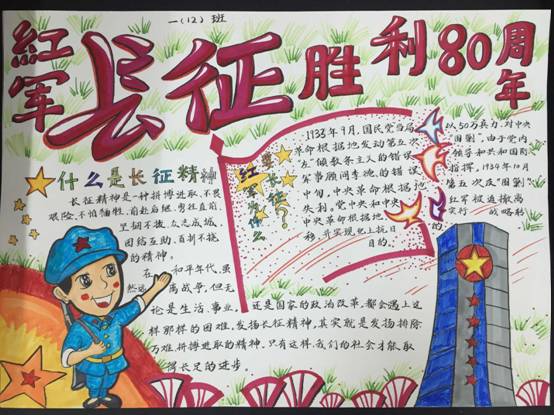 一(12)班
紅军长征胜利80周年
红军为什么要长征?
1933年9月,国民党当局以50万兵力,对中央
革命根据地发动第五次"围剿",由于党内
"左"倾教条主义的错误领导和共和国际
军事顾问李德的错误指挥,1934年10月
中旬,中央革命根据地第五次反"围剿"
失利。党中央和中央红军被迫撤离
中央革命根据地实行战略转
移,并实现北上抗日的
目的。
什么是长征精神
长征精神是一种拼搏进取、不畏
艰险、不怕牺牲,前赴后继、勇往直前、
坚韧不拔、众志成城、
团结互助、百折不挠
的精神。
在和平年代,虽
然远离战争,但无
论是生活、事业,还是国家的政治改革,都会遇上这
样那样的困难,发扬长征精神,其实就是发扬排除
万难、拼搏进取的精神,只有这样,我们的社会才能取
得长足的进步。